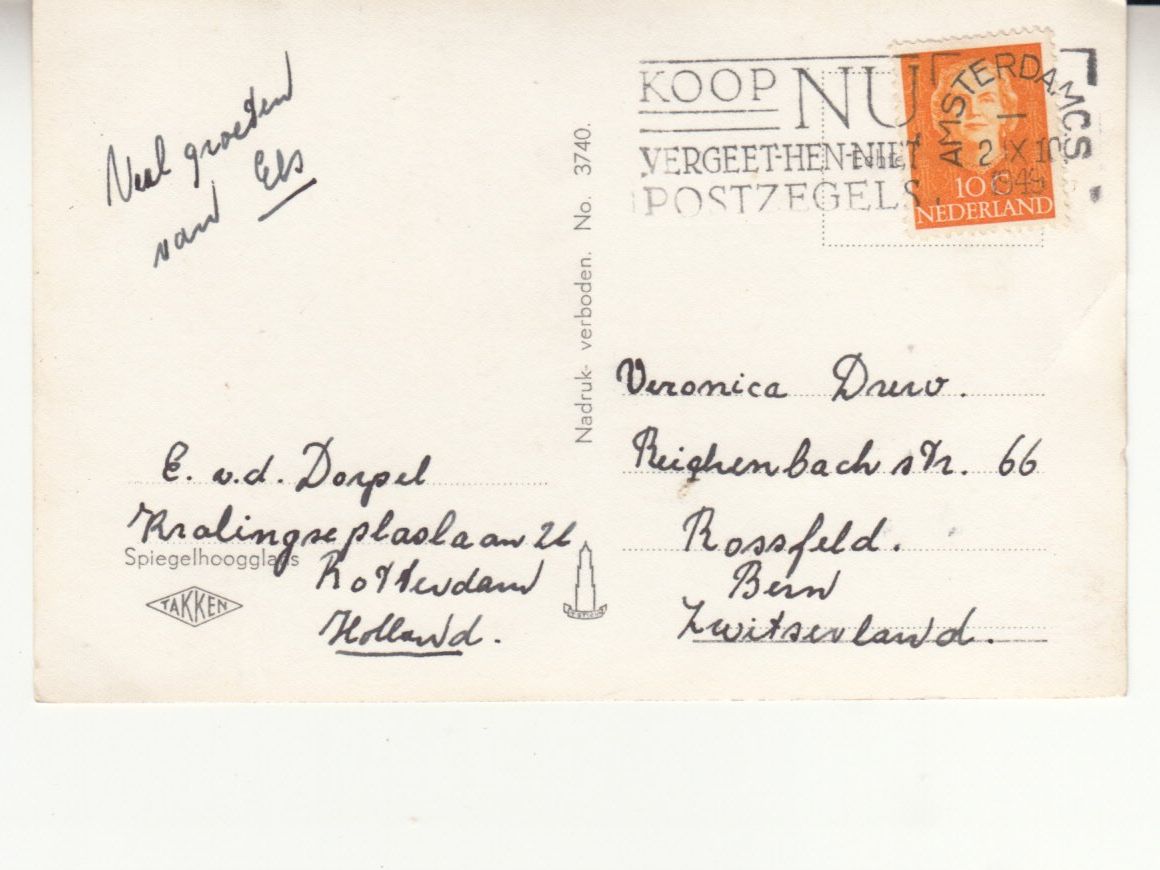 Veel groeten
van Els
E. v.d. Dorpel
Kralingseplaslaan 26
Rotterdam
Holland.
Spiegelhoogglans
TAKKEN
Nadruk- verboden. No. 3740.
KOOP NU
VERGEET-HEN-NIET
POSTZEGELS
AMSTERDAM C.S.
1949
10 C
NEDERLAND
Veronica Drew.
Reichenbachstr. 66
Rossfeld.
Bern
Zwitserland.